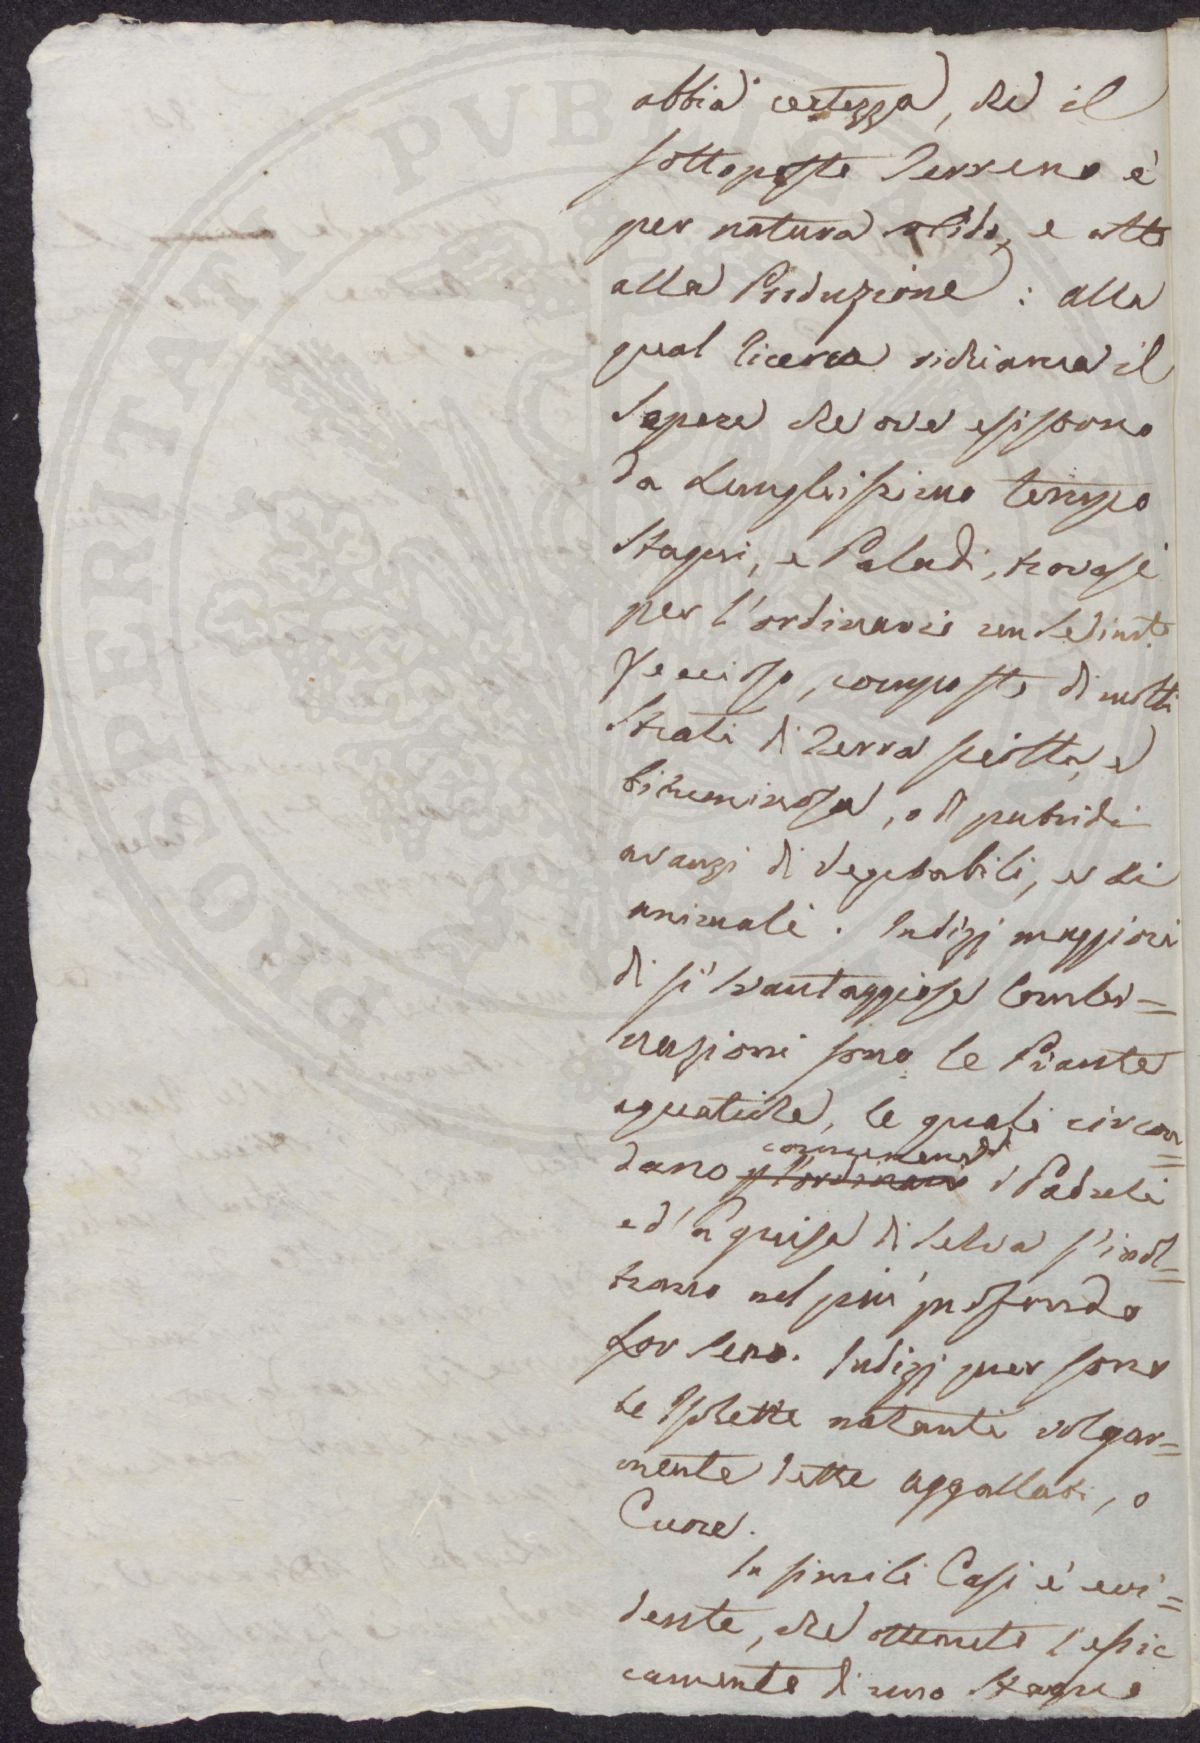 abbia certezza, che il
sottoposto Terreno è
per natura solido, e atto
alla Produzione : alla
qual ricerca richiama il
Sapere che ove esistono
da Lunghissimo tempo
Stagni, e Paludi, trovasi
per l'ordinario un Sedimto.
feccioso, composto di molti
Strati di Terra sciolta, e
bituminosa, o di putridi
avanzi di Vegetabili, e di
animali. Indizj maggiori
di sì svantaggiose Combi=
nazioni sono le Piante
aquatiche, le quali circon=
dano comunemente p l'ordinario i Paduli
ed a guisa di Selva s'inol=
trano nel più profondo
Lor Seno. Indizj pur sono
le Isolette natanti volgar=
mente dette aggallati, o
Cuore.
In simili Casi è evi=
dente, che ottenuto l'essic
camento di uno Stagno
PROSPERITATI PVBLICAE